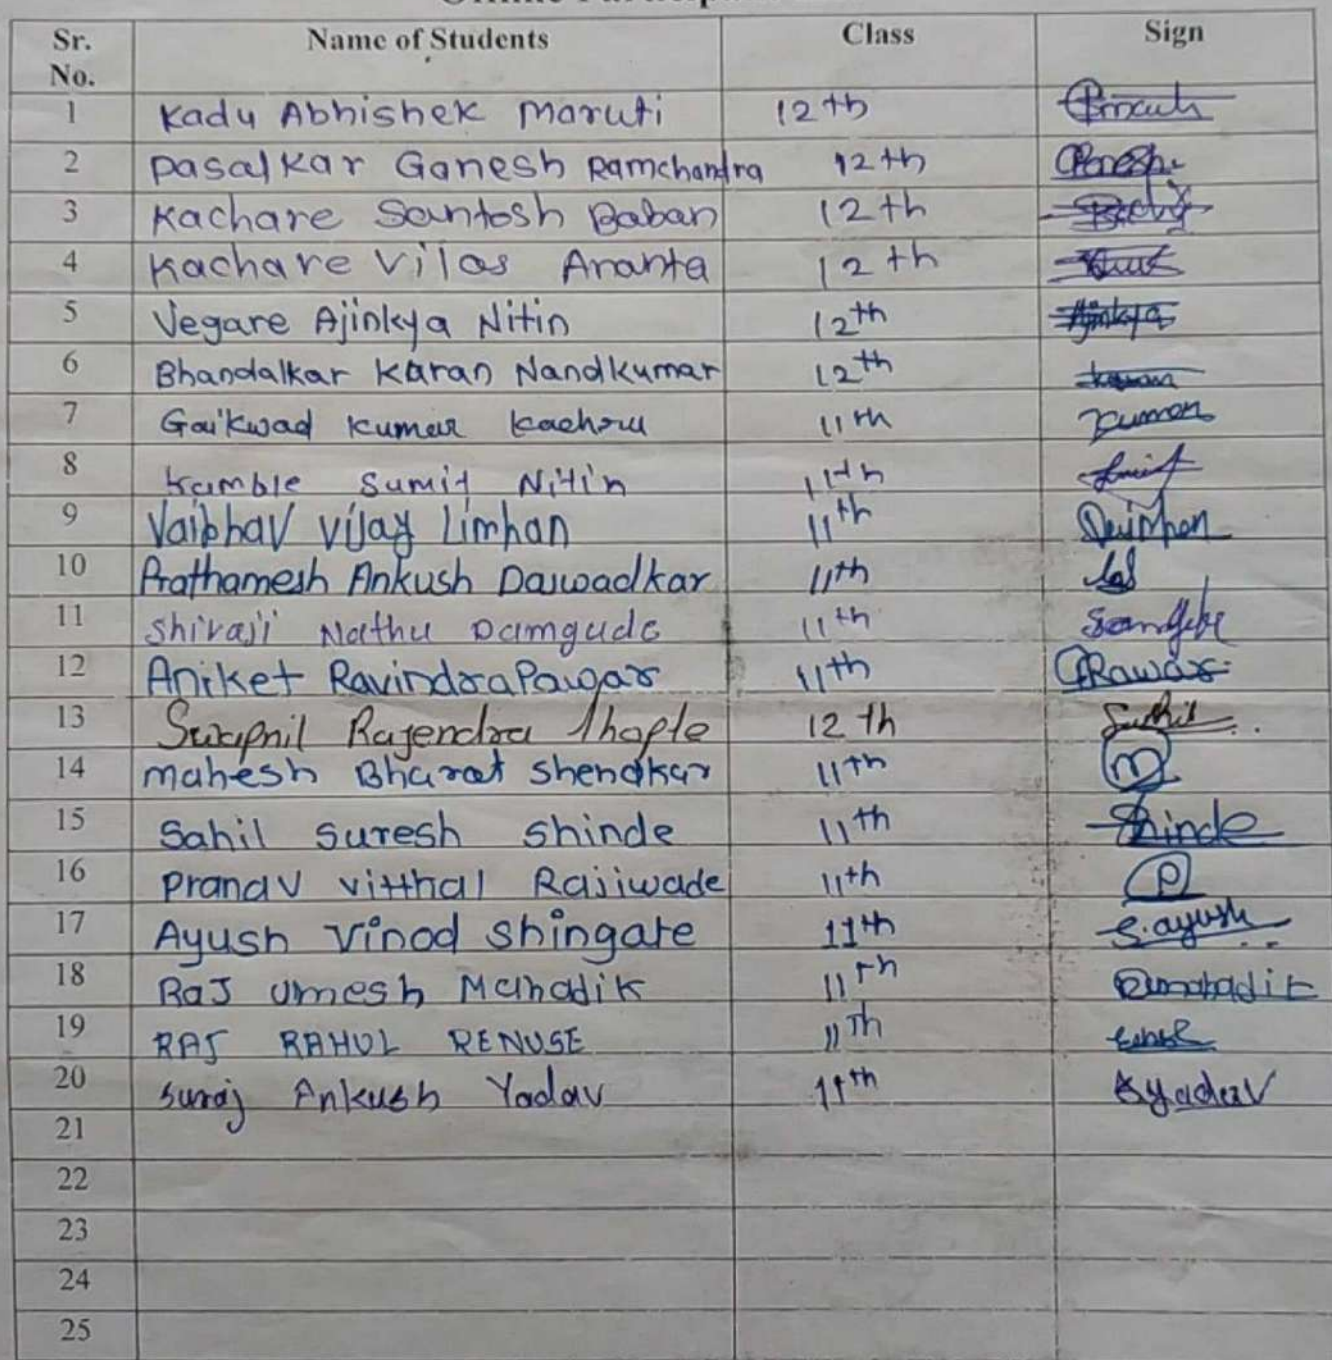 Sr. No. Name of Students Class Sign
1 Kadu Abhishek Maruti 12th
2 Pasalkar Ganesh Ramchandra 12th
3 Kachare Santosh Baban 12th
4 Kachare Vilas Ananta 12th
5 Vegare Ajinkya Nitin 12th Ajinkya
6 Bhandalkar Karan Nandkumar 12th
7 Gaikwad Kumar Kachru 11th
8 Kamble Sumit Nitin 11th
9 Vaibhav Vijay Limhan 11th
10 Prathamesh Ankush Daswadkar 11th
11 Shivaji Nathu Damgude 11th
12 Aniket Ravindra Pawar 11th
13 Swapnil Rajendra Thople 12th
14 Mahesh Bharat Shendkar 11th M
15 Sahil Suresh Shinde 11th Shinde
16 Pranav Vitthal Rajiwade 11th P
17 Ayush Vinod Shingate 11th S.ayush
18 Raj Umesh Mahadik 11th Rmahadik
19 RAJ RAHUL RENUSE 11Th
20 Suraj Ankush Yadav 11th syadav
21
22
23
24
25